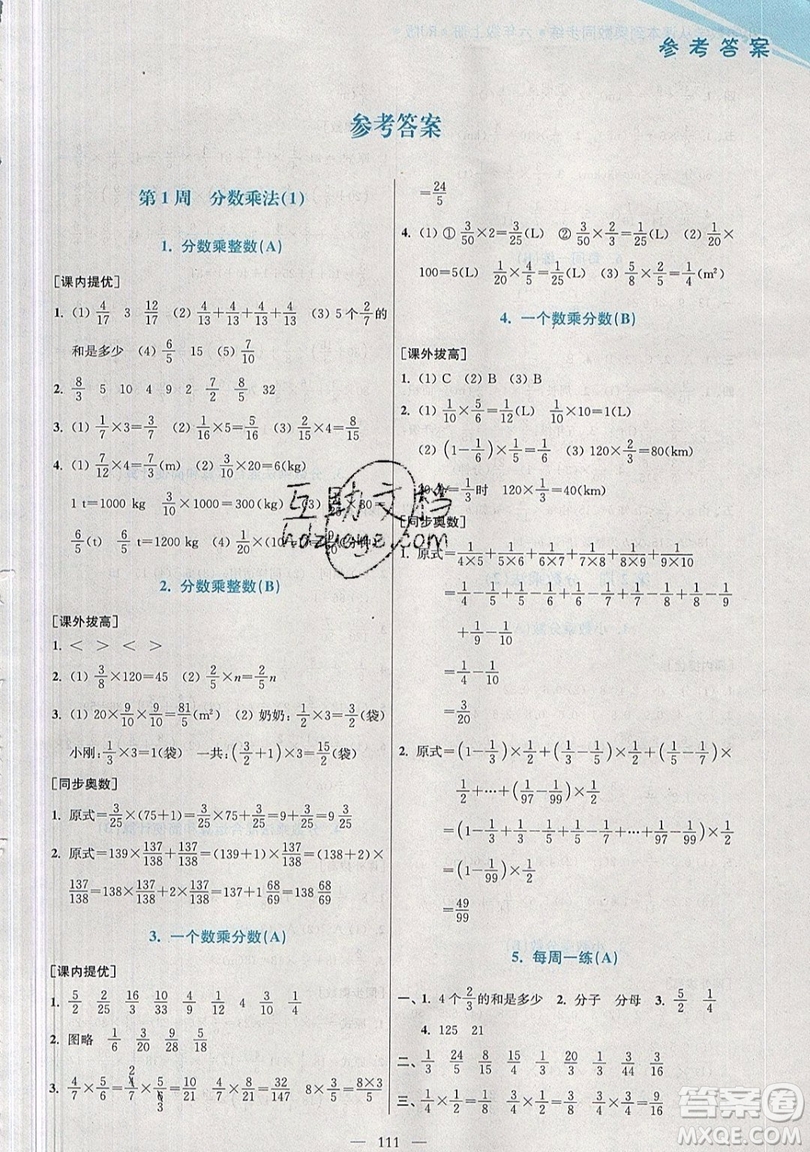 参考答案
参考答案
第1周 分数乘法(1)
1. 分数乘整数(A)
[课内提优]
1. (1) 4/17 3 12/17 (2) 4/13+4/13+4/13+4/13 (3) 5个2/7的
和是多少 (4) 6/5 15 (5) 7/10
2. 8/3 5 10 4 9 2 7/2 8/5 32
3. (1) 1/7×3=3/7 (2) 1/16×5=5/16 (3) 2/15×4=8/15
4. (1) 7/12×4=7/3(m) (2) 3/10×20=6(kg)
1 t=1000 kg 3/10×1000=300(kg) (3)
6/5(t) 6/5
2. 分数乘整数(B)
[课外拔高]
1. < > < >
2. (1) 3/8×120=45 (2) 2/5×n=2/5n
3. (1) 20×9/10×9/10=81/5(m²) (2) 奶奶:1/2×3=3/2(袋)
小刚:1/3×3=1(袋) 一共:(3/2+1)×3=15/2(袋)
[同步奥数]
1. 原式=3/25×(75+1)=3/25×75+3/25=9+3/25=9 3/25
2. 原式=139×137/138=(139+1)×137/138=(138+2)×
137/138=138×137/138+2×137/138=137+1 68/69=138 68/69
3. 一个数乘分数(A)
[课内提优]
1. 5/2 2/25 16/15 10/33 9/10 4/21 1/8 3/10
2. 图略 1/6 3/20 9/28 5/18
3. 4/7×5/6=4/7×5/6=10/21 4/7×8/21=32/147 8×3/5=8×3/5
=24/5
4. (1) ① 3/50×2=3/25(L) ② 3/50×2/3=1/25(L) (2) 1/20×
100=5(L) 1/20×4/5=1/25(L) (3) 5/8×2/5=1/4(m²)
4. 一个数乘分数(B)
[课外拔高]
1. (1) C (2) B (3) B
2. (1) 1/10×5/6=1/12(L) 1/10×10=1(L)
(2) (1-1/6)×(1-1/6) (3) 120×2/3=80(km)
1/3时 120×1/3=40(km)
[同步奥数]
1. 原式=1/4×5+1/5×6+1/6×7+1/7×8+1/8×9+1/9×10
=1/4-1/5+1/5-1/6+1/6-1/7+1/7-1/8+1/8-1/9
+1/9-1/10
=1/4-1/10
=3/20
2. 原式=(1-1/3)×1/2+(1/3-1/5)×1/2+(1/5-1/7)×
1/2+…+(1/97-1/99)×1/2
=(1-1/3+1/3-1/5+1/5-1/7+…+1/97-1/99)×1/2
=(1-1/99)×1/2
=49/99
5. 每周一练(A)
一、1. 4个2/3的和是多少 2. 分子 分母 3. 5/2 1/4
4. 125 21
二、1/3 24/5 8/15 15/4 4/15 1/10 8/3 4/3 1/3
三、1/4×1/2=1/8 1/3×2/5=2/15 1/5×3/4=3/20
111
互助文档
hdzuoye.com
答案圈
MXQE.COM